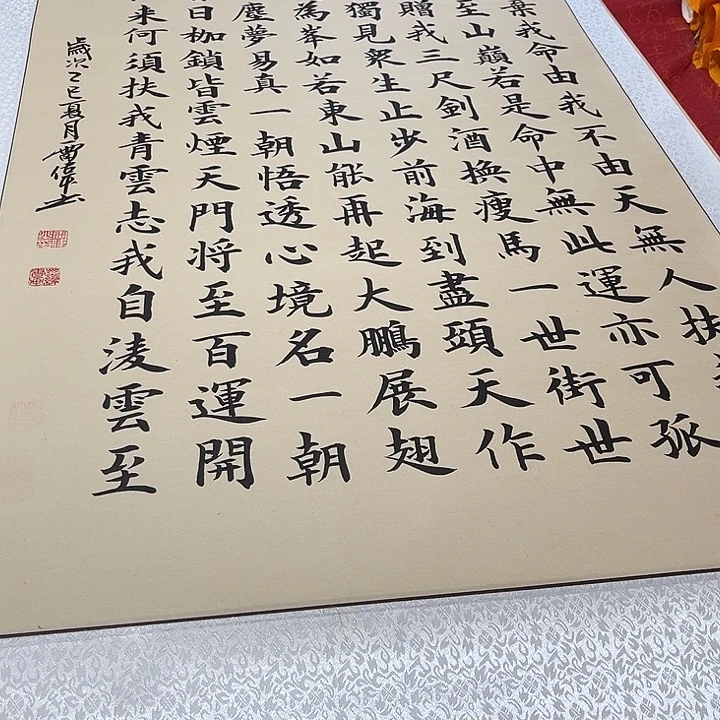 棄我命由我不由天無人扶
至山巔若是命中無此運亦可弧
贈我三尺劍酒換瘦馬一世街世
獨見衆生止步前海到盡頭天作
為峯如若東山能再起大鵬展翅
塵夢易真一朝悟透心境名一朝
日枷鎖皆雲煙天門将至百運開
来何須扶我青雲志我自淩雲至
歲次乙巳夏月雷偉书